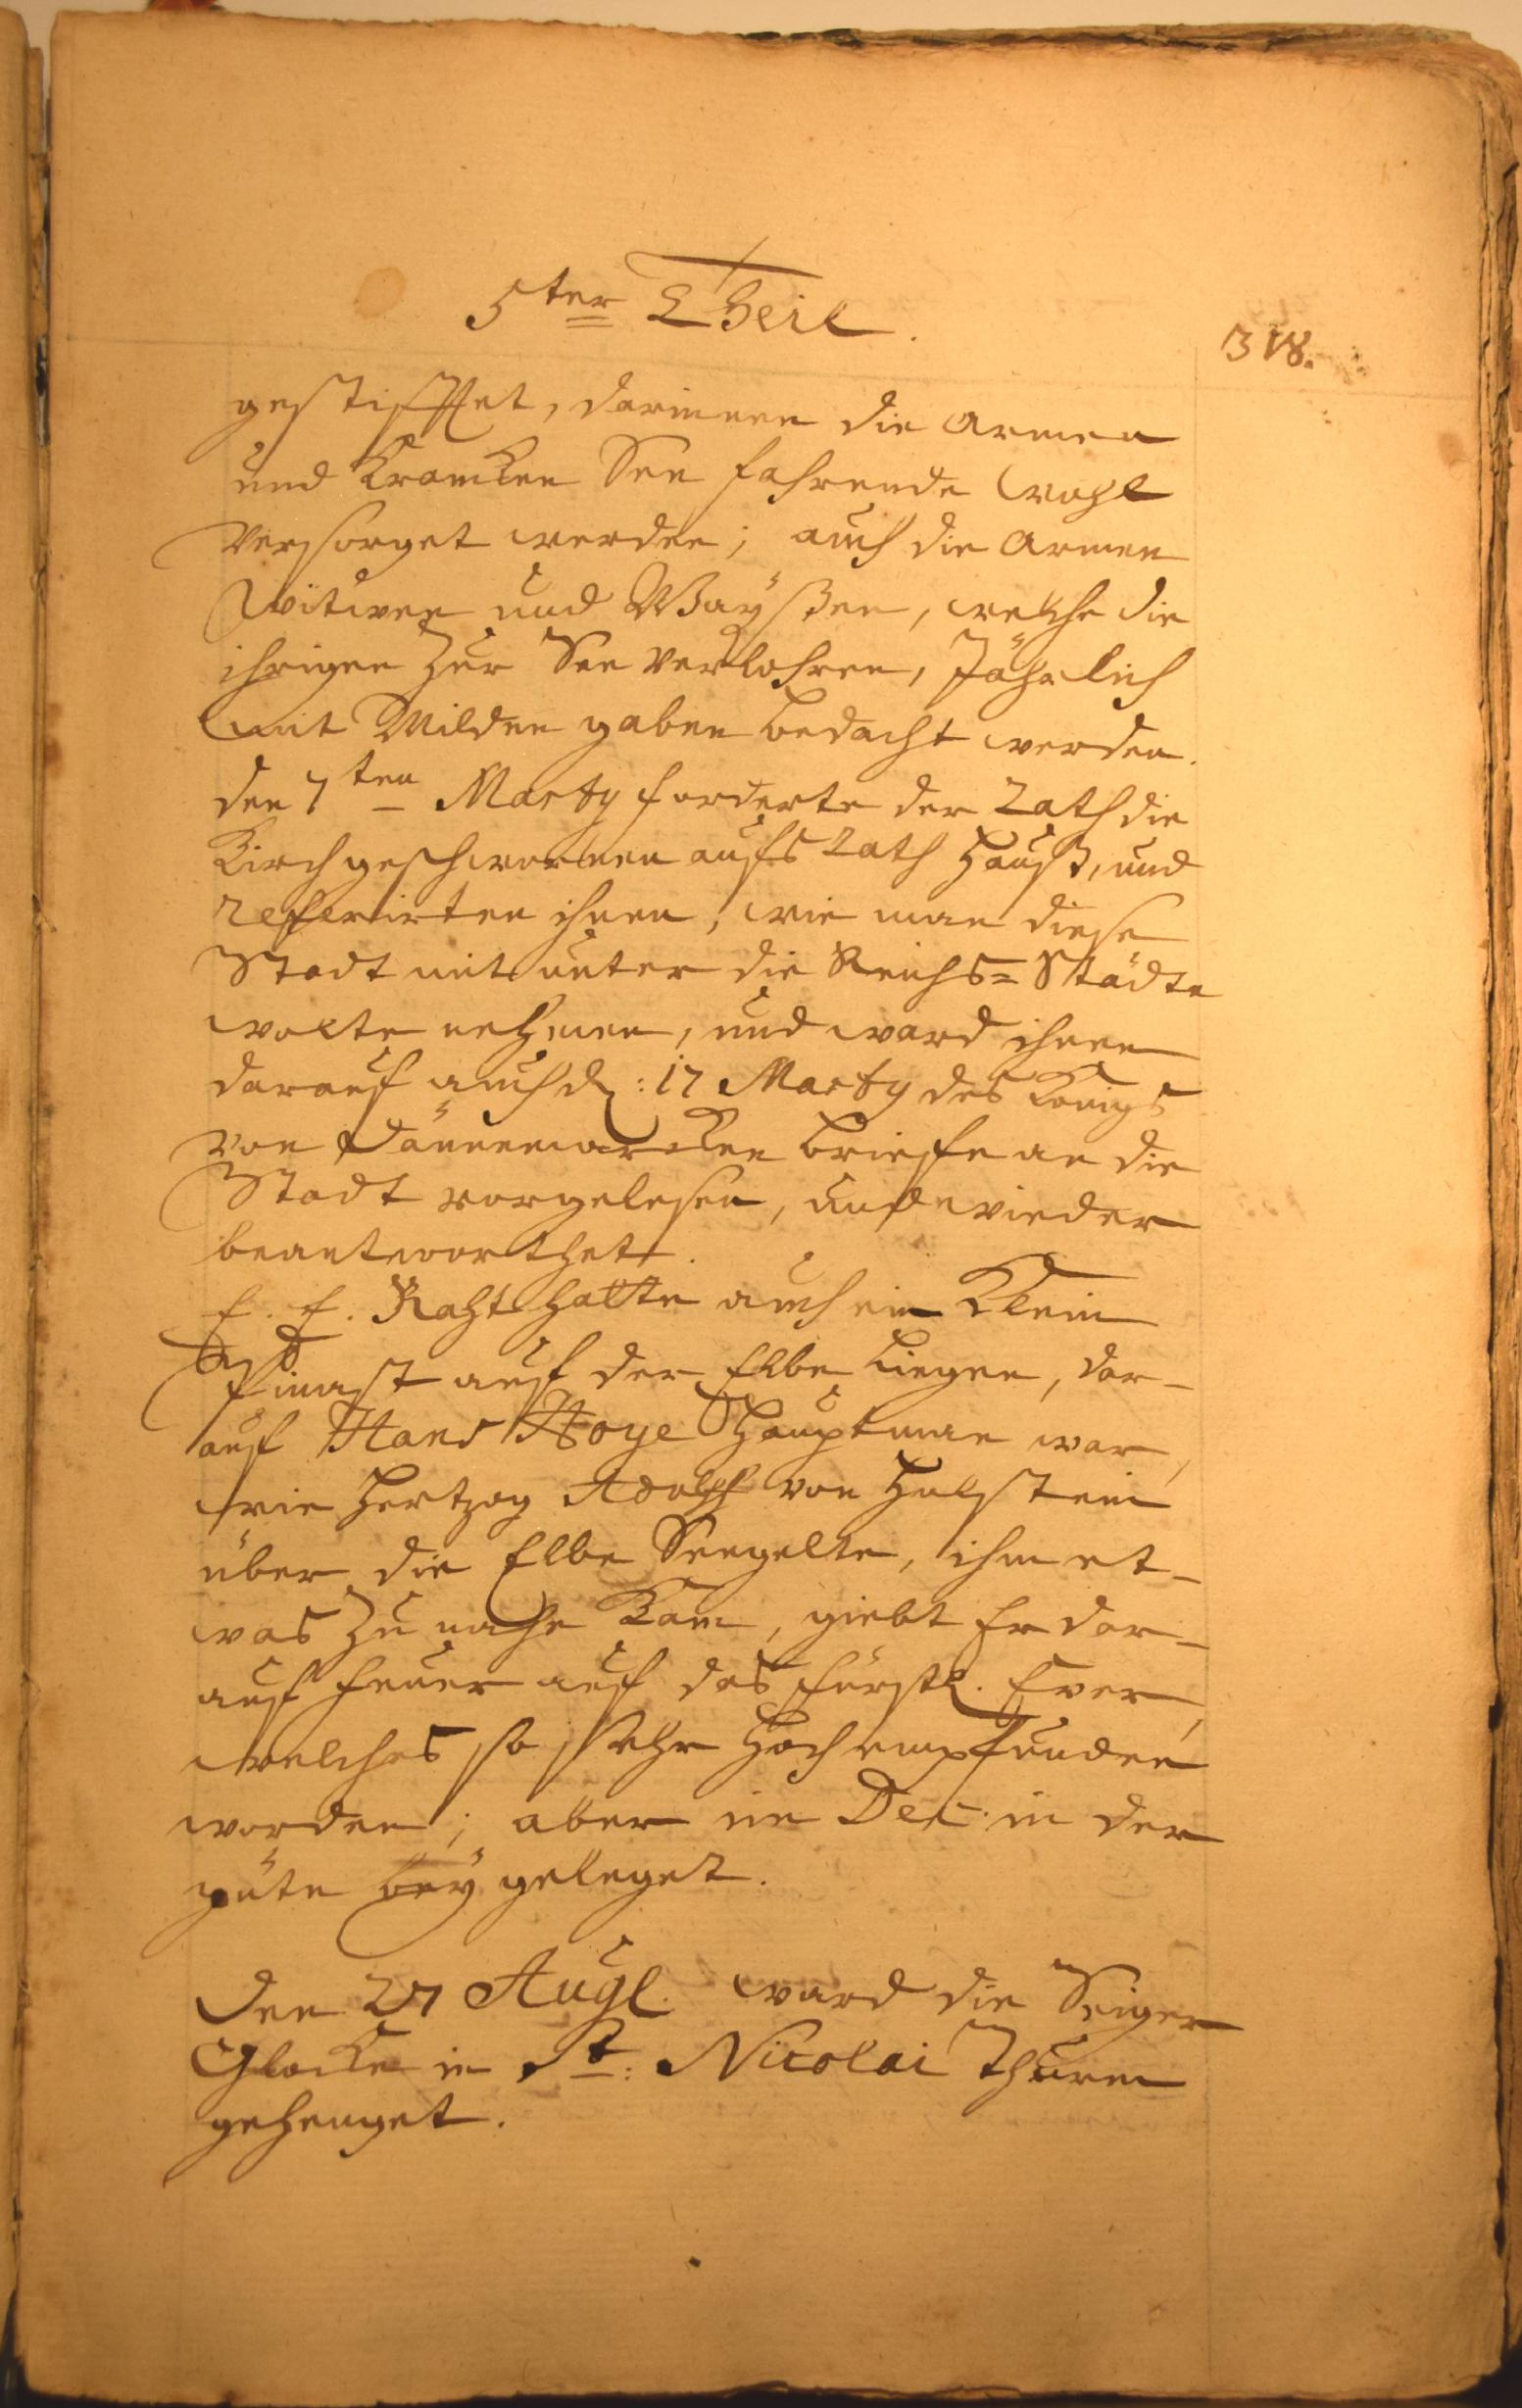 5ter Theil.
318.
gestifftet, darinnen die Armen
und Krancken See fahrende wohl
versorget werden; auch die Armen
Witwen und Wayßen, welche die
ihrigen zur See verlohren, Jährlich
mit Milden gaben bedacht werden.
den 7ten Marty forderte der Rath die
Kirchgeschwornen aufs Rath Hauß, und
referirten ihnen, wie man diese
Stadt mit unter die Reichs=Städte
wolte nehmen, und ward ihnen
darauf auch d: 17 Marty des Königs
von Dännemarcken briefe an die
Stadt vorgelesen, und wieder
beantworthet.
E. E. Raht hatte auch ein Klein
Pinast auf der Elbe liegen, dar-
auf Hans Hoye Hauptman war,
wie Hertzog Adolph von Holstein
über die Elbe Seegelte, ihm et-
was zu nahe Kam, giebt Er dar-
auf feuer auf das fürstl. Ever,
welches so sehr hoch empfunden
worden; aber im Dec. in der
güte bey geleget.
Den 27 Augl. ward die Seiger
Glocke in St: Nicolai Thurm
gehenget.